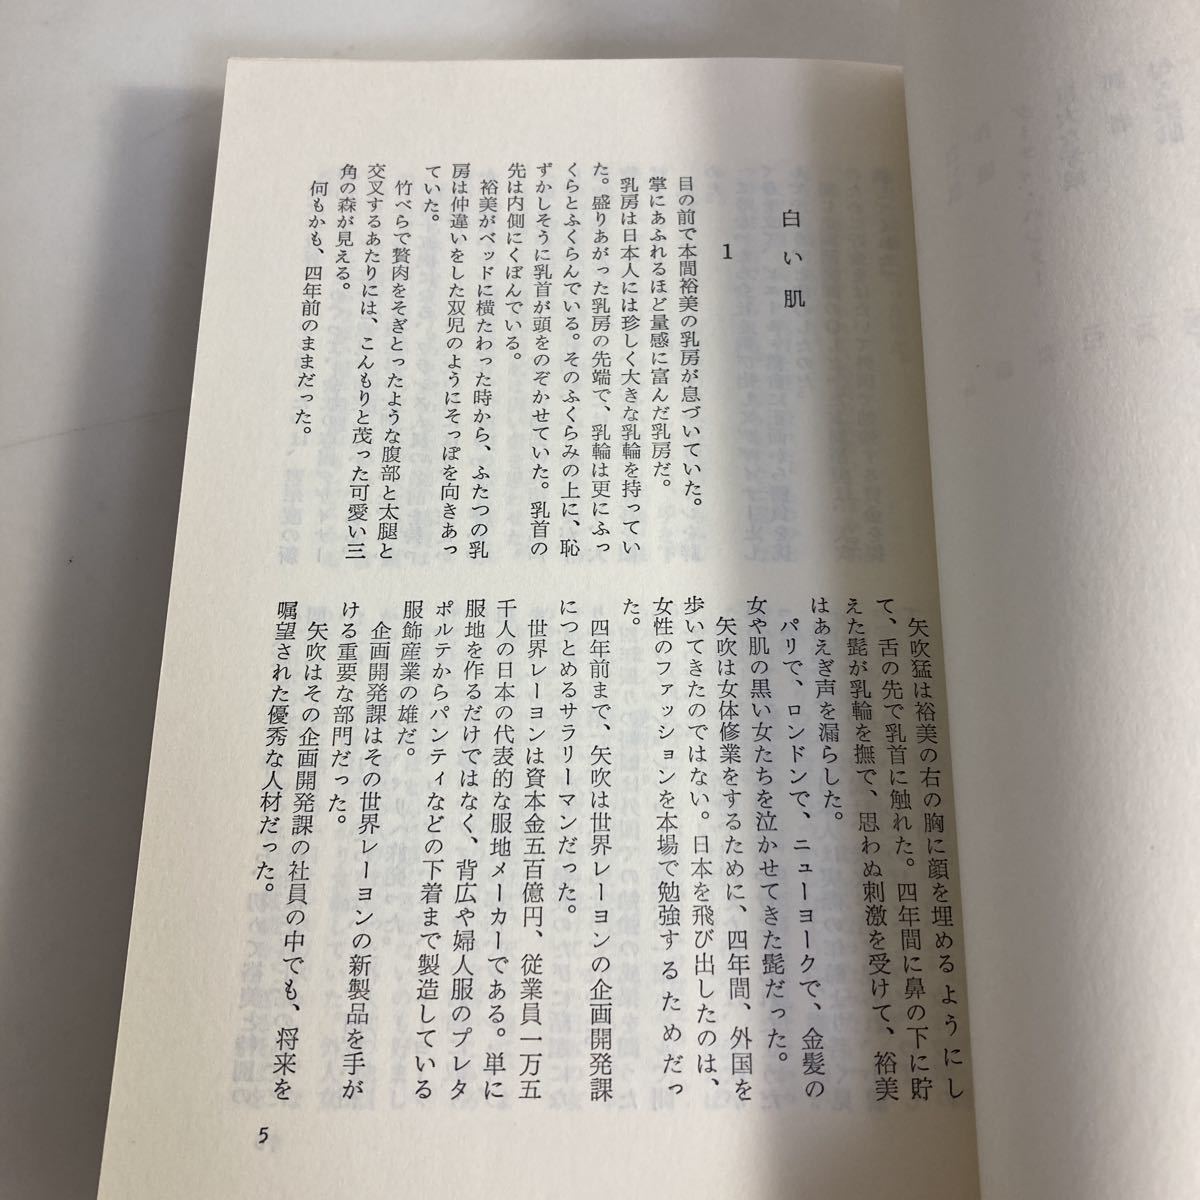 白い肌
1
目の前で本間裕美の乳房が息づいていた。
掌にあふれるほど量感に富んだ乳房だ。
乳房は日本人には珍しく大きな乳輪を持ってい
た。盛りあがった乳房の先端で、乳輪は更にふっ
くらとふくらんでいる。そのふくらみの上に、恥
ずかしそうに乳首が頭をのぞかせていた。乳首の
先は内側にくぼんでいる。
裕美がベッドに横たわった時から、ふたつの乳
房は仲違いをした双児のようにそっぽを向きあっ
ていた。
竹べらで贅肉をそぎとったような腹部と太腿と
交叉するあたりには、こんもりと茂った可愛い三
角の森が見える。
何もかも、四年前のままだった。
矢吹猛は裕美の右の胸に顔を埋めるようにし
て、舌の先で乳首に触れた。四年間に鼻の下に貯
えた髭が乳輪を撫で、思わぬ刺激を受けて、裕美
はあえぎ声を漏らした。
パリで、ロンドンで、ニューヨークで、金髪の
女や肌の黒い女たちを泣かせてきた髭だった。
矢吹は女体修業をするために、四年間、外国を
歩いてきたのではない。日本を飛び出したのは、
女性のファッションを本場で勉強するためだっ
た。
四年前まで、矢吹は世界レーヨンの企画開発課
につとめるサラリーマンだった。
世界レーヨンは資本金五百億円、従業員一万五
千人の日本の代表的な服地メーカーである。単に
服地を作るだけではなく、背広や婦人服のプレタ
ポルテからパンティなどの下着まで製造している
服飾産業の雄だ。
企画開発課はその世界レーヨンの新製品を手が
ける重要な部門だった。
矢吹はその企画開発課の社員の中でも、将来を
嘱望された優秀な人材だった。
5